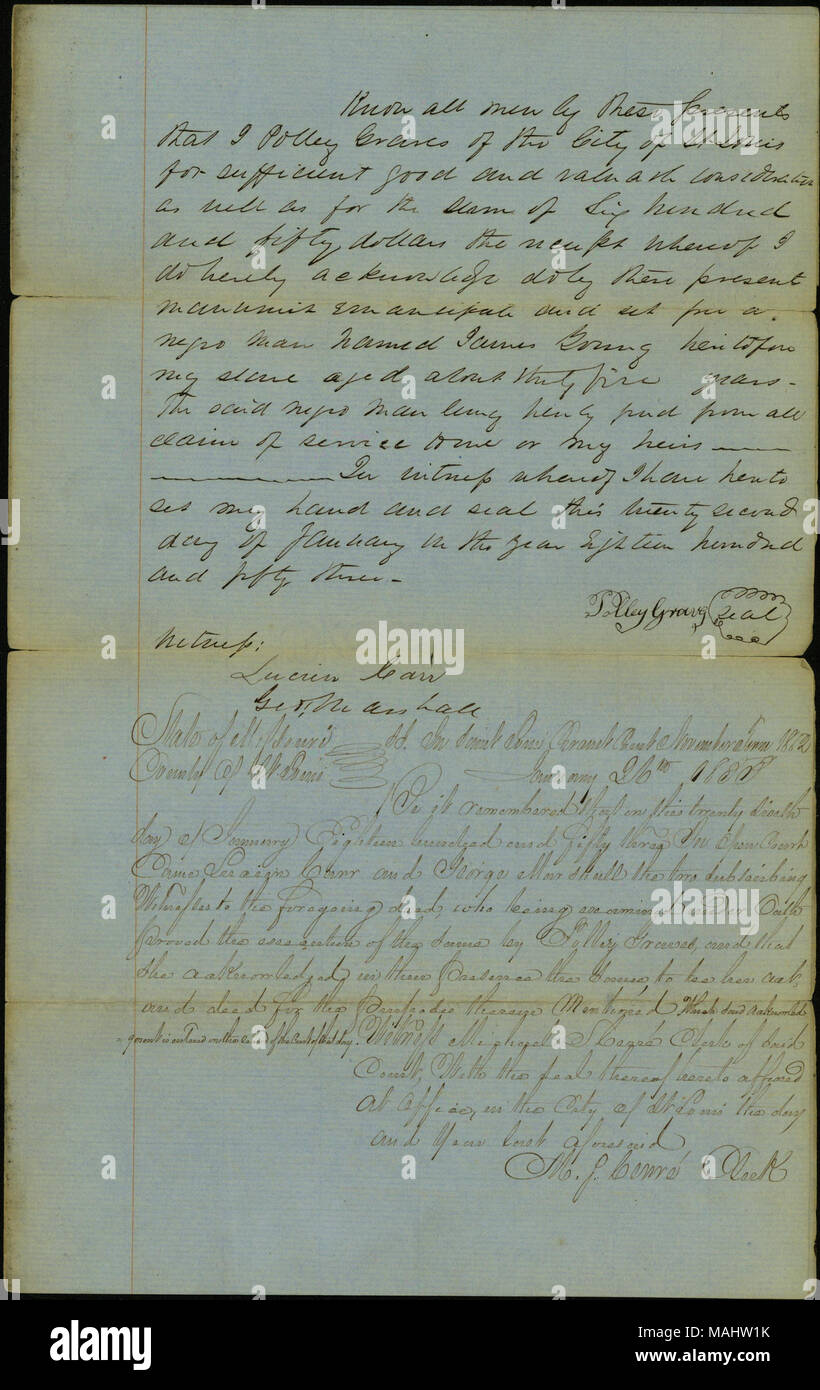 Know all men by these presents
that I Polley Graves of the City of St Louis
for sufficient good and valuable consideration
as well as for the sum of Six hundred
and fifty dollars the receipt whereof I
do hereby acknowledge do by these present
manumit Emancipate and set free a
negro man named James Young heretofore
my slave aged about thirty five years—
The said negro man being hereby freed from all
claim of service to me or my heirs
In witness whereof I have hereto
set my hand and seal this twenty second
day of January in the year Eighteen hundred
and fifty three—
Polley Graves Seal
Witness:
Lucien Carr
Geo. Marshall
State of Missouri In Saint Louis Circuit Court November Term 1852
County of St Louis January 26th
Be it remembered that on this twenty Sixth
day of January Eighteen hundred and fifty three In Open Court
Came Carr and George Marshall the two Subscribing
Witnesses to the foregoing deed, who being examined under Oath
proved the execution of the Same by Polley Graves, and that
She acknowledged in their presence the Same, to be her act
and deed for the purposes therein Mentioned Which Said acknowled
gement is entered on the record of the Court of that day. Witness Clerk of Said
Court, With the Seal thereof hereto affixed
at Office, in the City of St Louis the day
and Year last aforesaid
Clerk
alamy
Image ID: MAHW1K
www.alamy.com